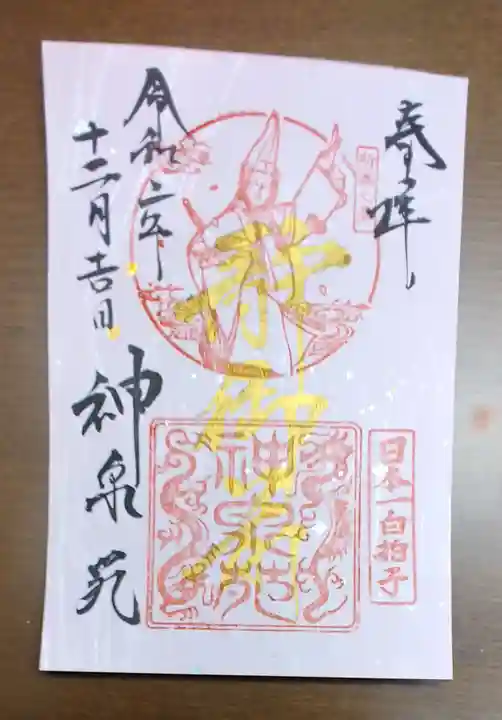 奉拝
日本一白拍子
静御前
神泉苑
令和二年
十二月吉日
神泉苑